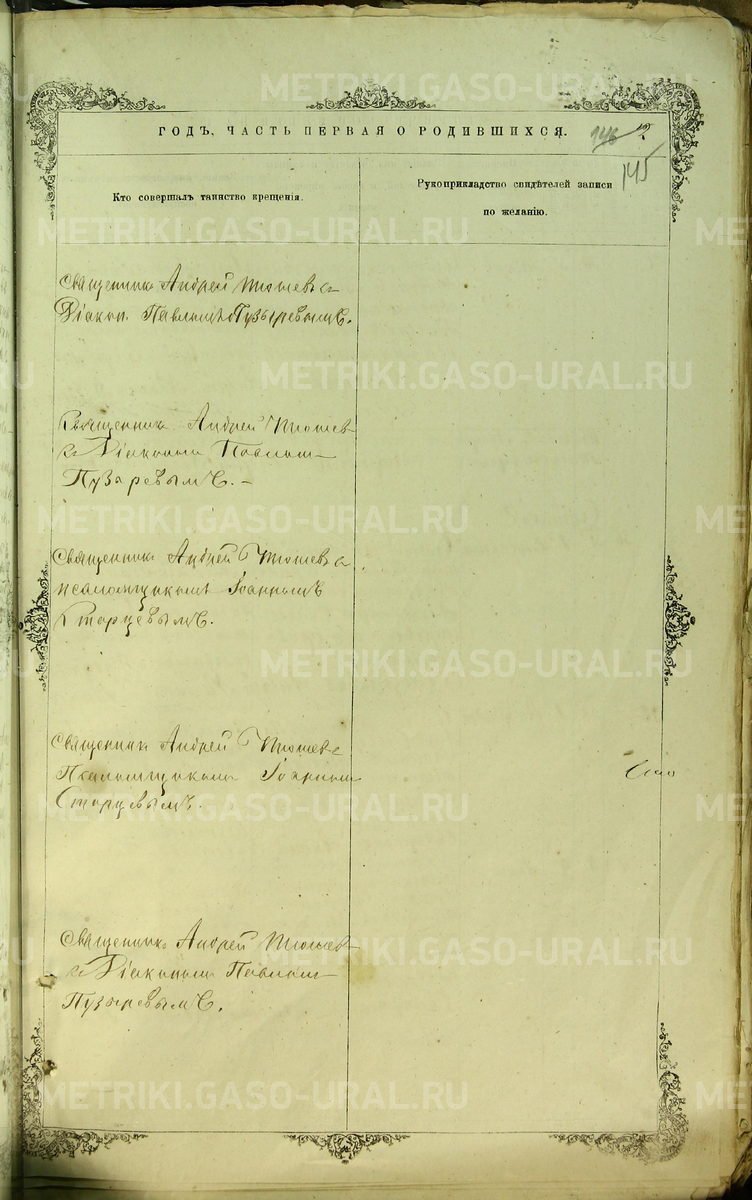 ГОДЪ, ЧАСТЬ ПЕРВАЯ О РОДИВШИХСЯ.
145
Кто совершалъ таинство крещенія.
Рукоприкладство свидѣтелей записи
по желанію.
Священникъ Андрей Тюшевъ съ
Діакон. Павломъ Пузыревымъ.
Священникъ Андрей Тюшев
съ Діакономъ Павлом
Пузыревымъ.
Священникъ Андрей Тюшевъ съ
псаломщикомъ Іоанномъ
Старцевымъ.
Священникъ Андрей Тюшев съ
Псаломщикомъ Іоанном
Старцевымъ.
Священникъ Андрей Тюшев
съ Діакономъ Павлом
Пузыревымъ.
METRIKI.GASO-URAL.RU